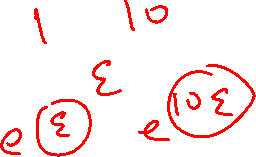 1 10
ε
e ε e 10 ε